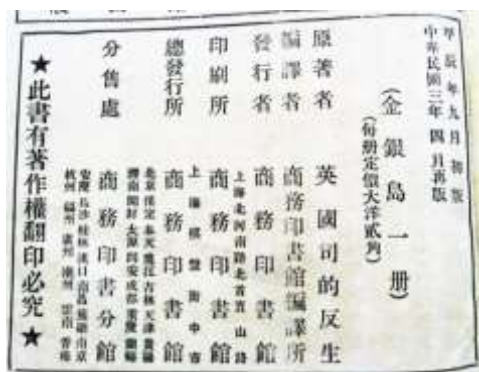 甲辰年九月初版
中華民國三年四月再版
(金銀島一册)
(每册定價大洋貳角)
原著者 英國司的反生
編譯者 商務印書館編譯所
發行者 商務印書館
上海北河南路北首寶山路
印刷所 商務印書館
上海棋盤街中市
總發行所 商務印書館
北京 保定 奉天 龍江 吉林 天津
濟南 開封 太原 西安 成都 重慶
分售處 商務印書分館
安慶 長沙 桂林 漢口 南昌 蕪湖 南京
杭州 福州 廣州 潮州 雲南 香港
★此書有著作權翻印必究★